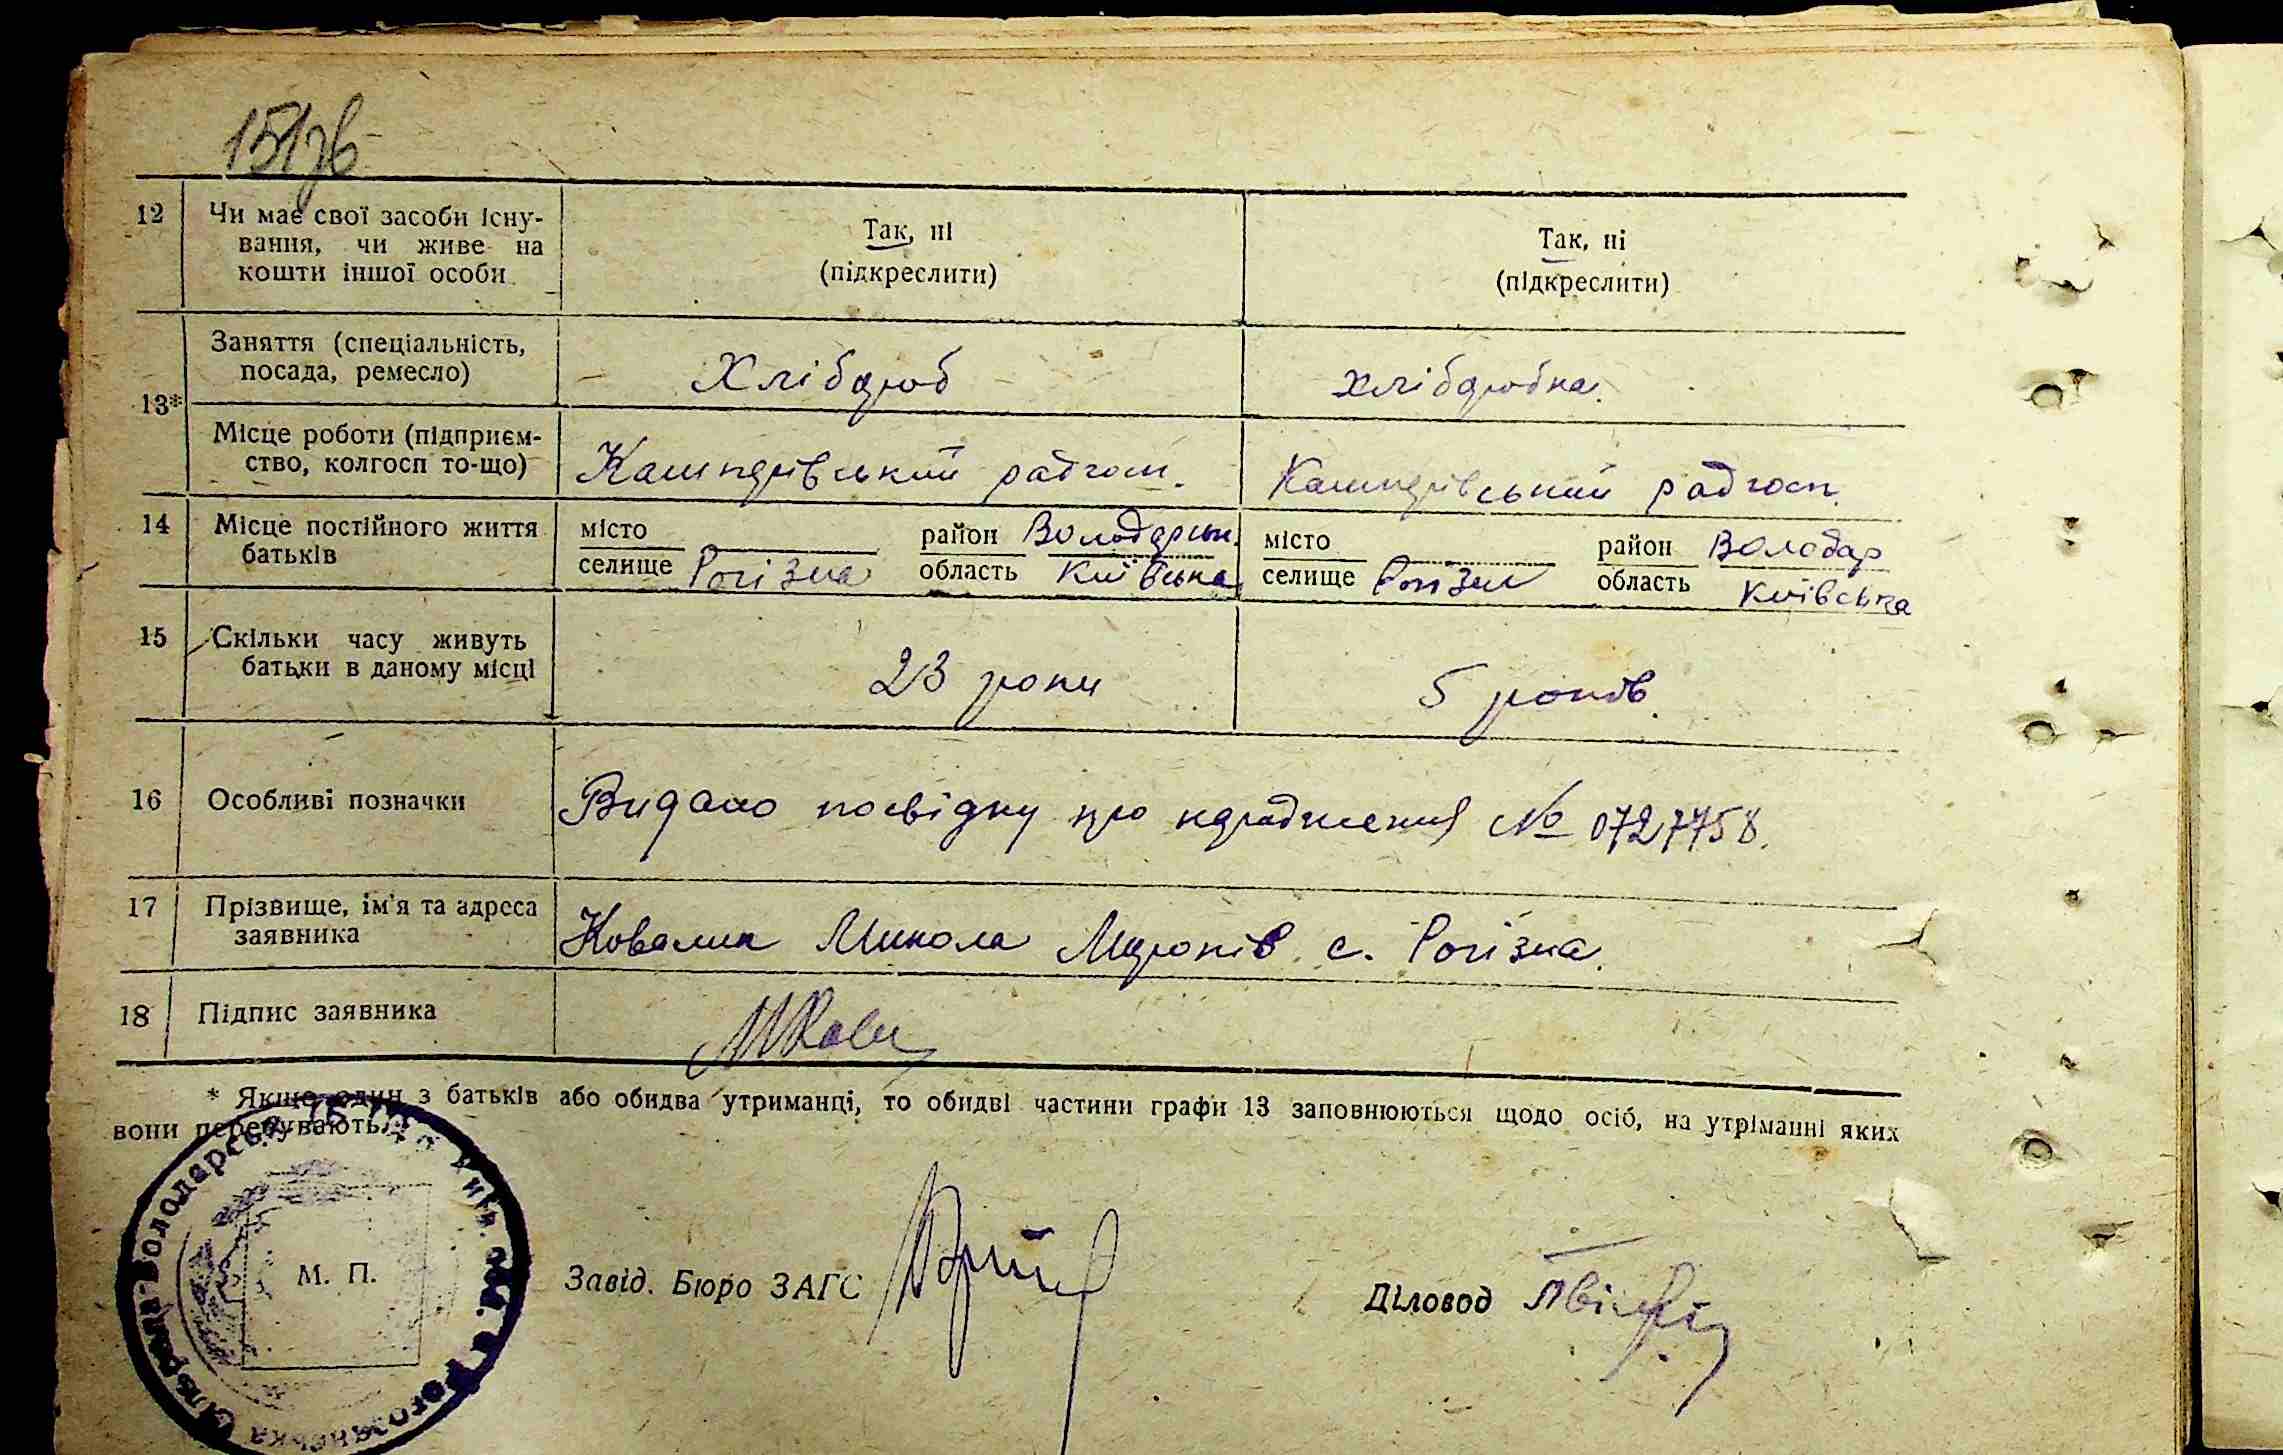 151зв
12 Чи має свої засоби існу-
вання, чи живе на
кошти іншої особи
Так, ні
(підкреслити)
Так, ні
(підкреслити)
13*
Заняття (спеціальність,
посада, ремесло)
Хлібороб
хліборобка.
Місце роботи (підприєм-
ство, колгосп то-що)
радгосп.
радгосп.
14 Місце постійного життя
батьків
місто
селище Рогізна
район Володарськ.
область Київська
місто
селище Рогізна
район Володар
область Київська
15 Скільки часу живуть
батьки в даному місці
23 роки
5 років.
16 Особливі позначки
Видано посвідку про народження № 0727758.
17 Прізвище, ім'я та адреса
заявника
Микола с. Рогізна.
18 Підпис заявника
* Якщо один з батьків або обидва утриманці, то обидві частини графи 13 заповнюються щодо осіб, на утріманні яких
вони перебувають.
М. П.
Завід. Бюро ЗАГС
Діловод